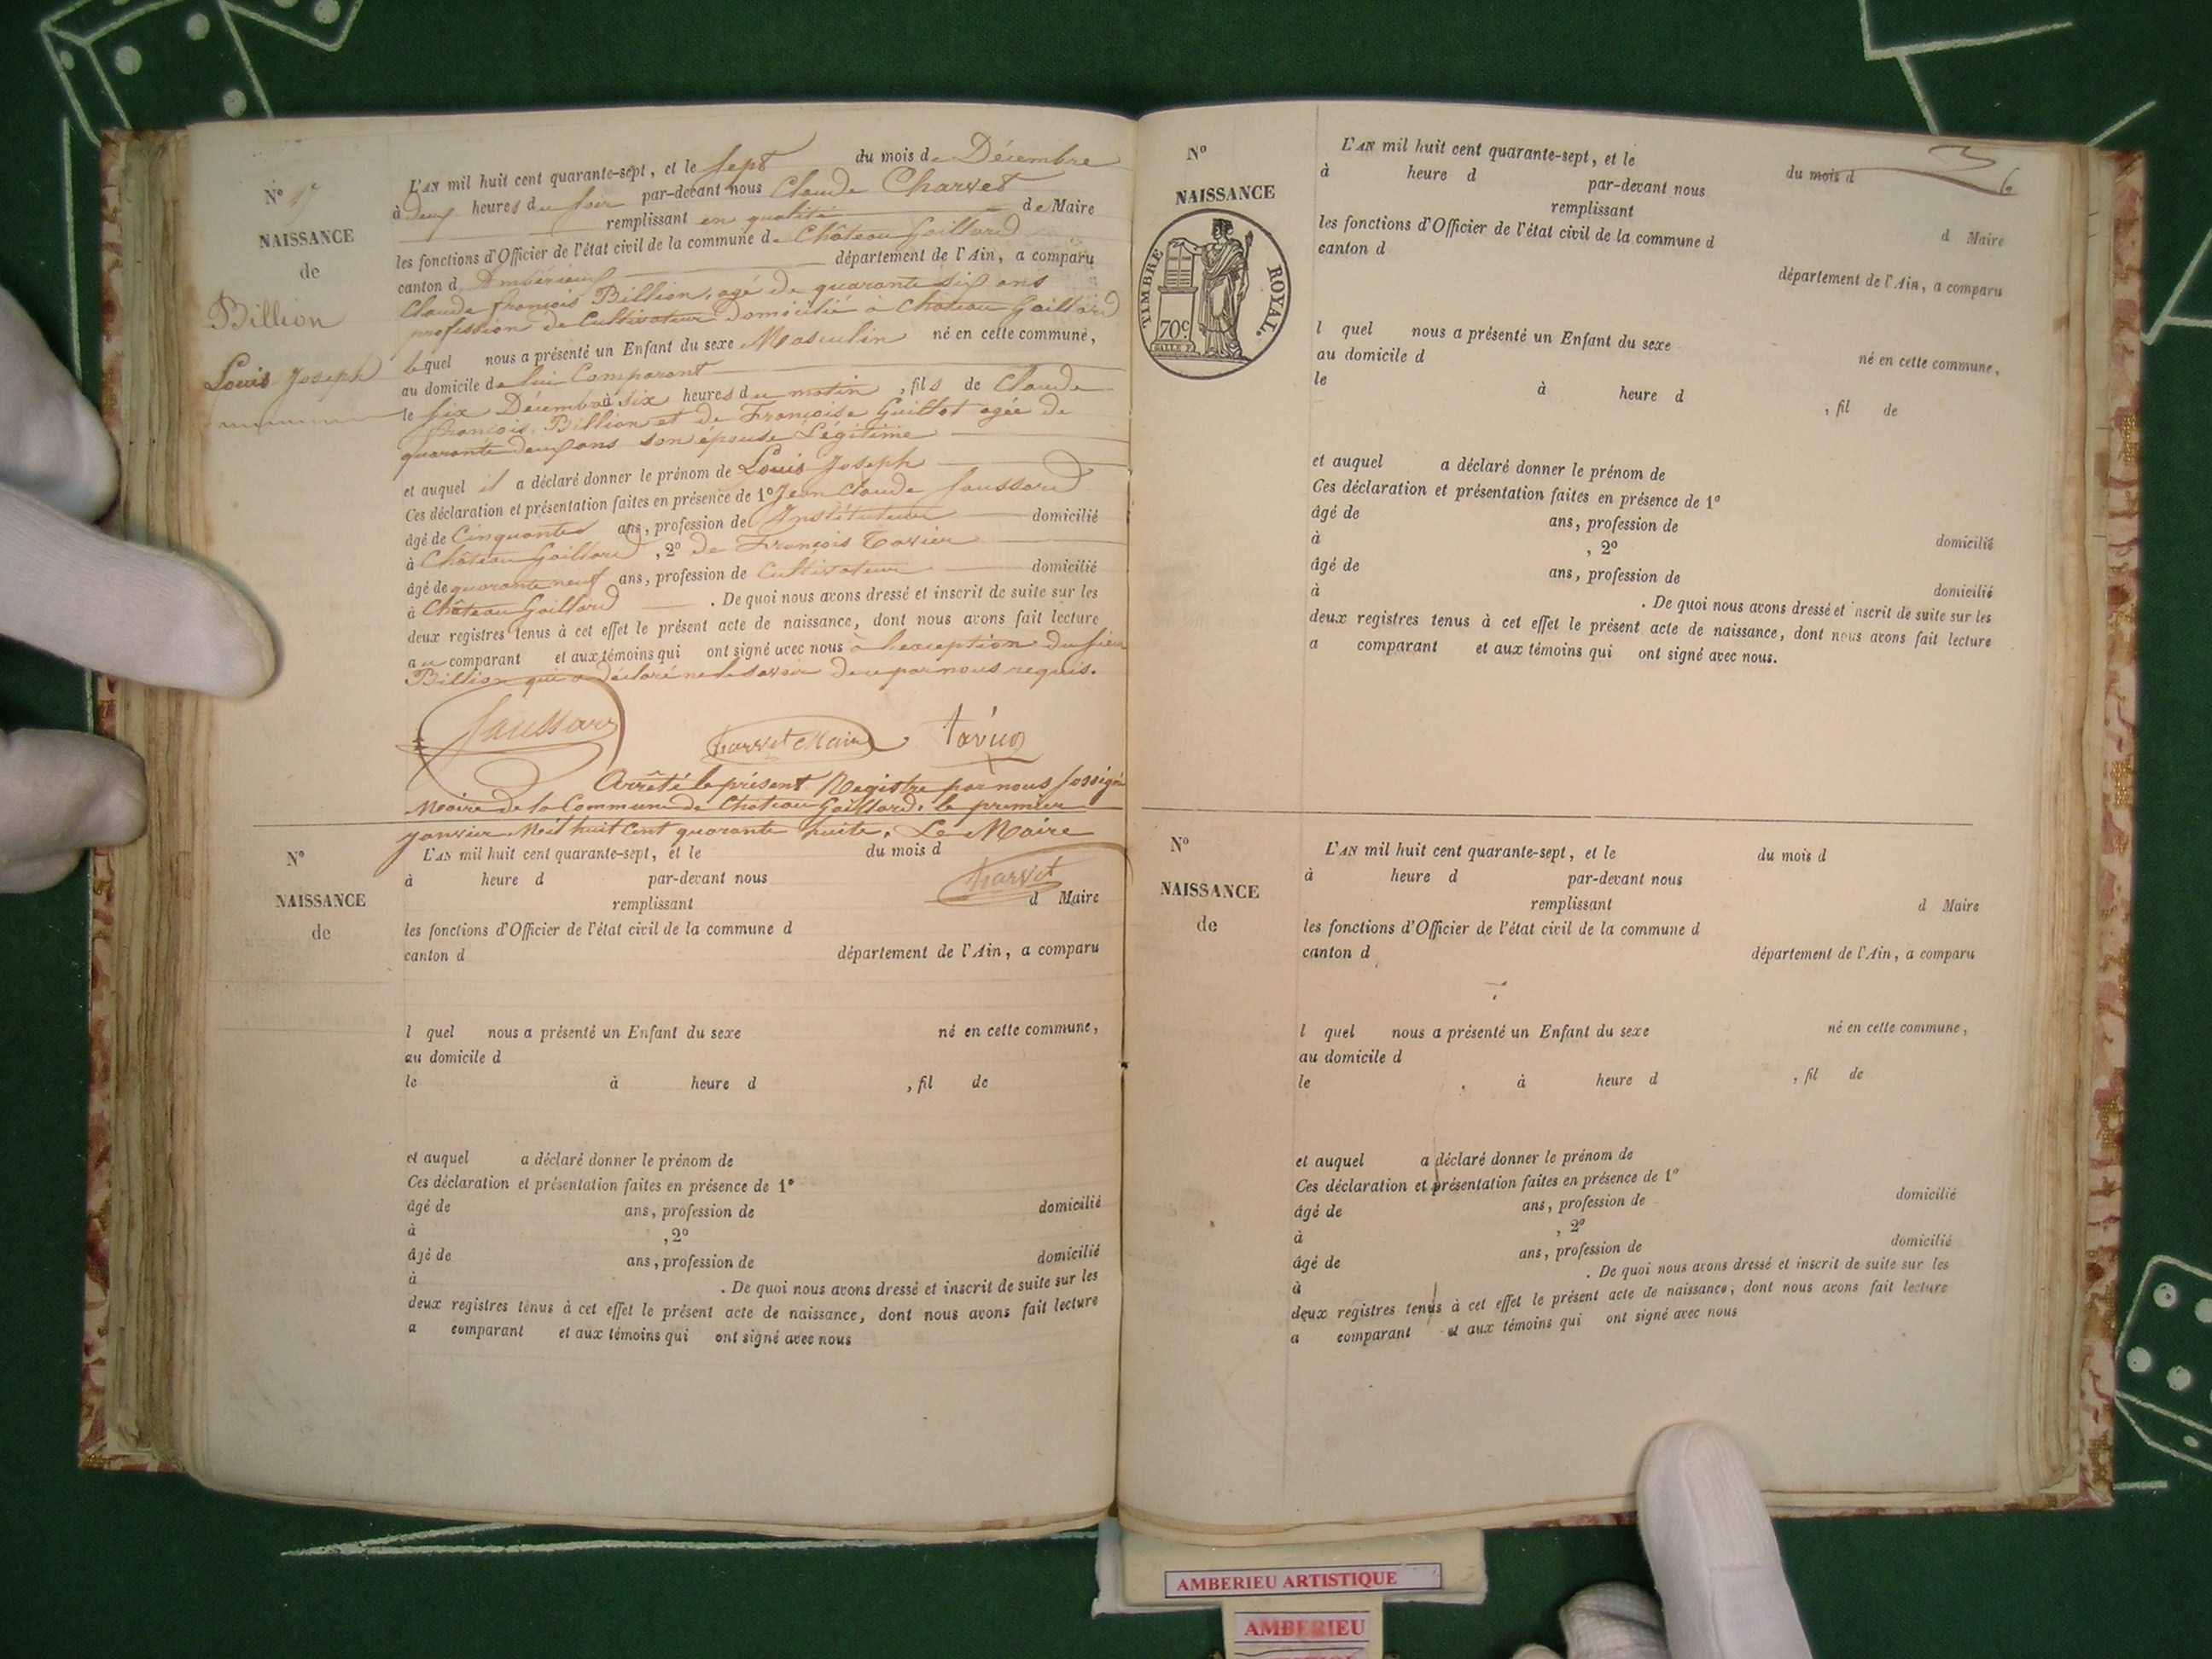 N° 17
NAISSANCE
de
Billion
Louis Joseph
L'AN mil huit cent quarante-sept, et le sept du mois de Décembre
à deux heures du soir par-devant nous Claude Charvet
remplissant en qualité de Maire
les fonctions d'Officier de l'état civil de la commune de Château Gaillard
canton d'Ambérieux département de l'Ain, a comparu
Claude françois Billion, agé de quarante six ans
profession de Cultivateur domicilié à Château Gaillard
lequel nous a présenté un Enfant du sexe Masculin né en cette commune,
au domicile de lui Comparant
le six Décembre à six heures du matin, fils de Claude
françois Billion et de Françoise Guillot agée de
quarante deux ans son épouse Légitime
et auquel il a déclaré donner le prénom de Louis Joseph
Ces déclaration et présentation faites en présence de 1° Jean Claude
âgé de Cinquante ans, profession de Instituteur domicilié
à Château Gaillard, 2° de François
âgé de quarante neuf ans, profession de Cultivateur domicilié
à Château Gaillard. De quoi nous avons dressé et inscrit de suite sur les
deux registres tenus à cet effet le présent acte de naissance, dont nous avons fait lecture
au comparant et aux témoins qui ont signé avec nous à l'exception du sieur
Billion qui a déclaré ne le savoir de ce par nous requis.
Charvet Maire
Arrêté le présent Registre par nous sossigné
Maire de la Commune de Château Gaillard, le premier
janvier Mil huit Cent quarante huite. Le Maire
Charvet
N°
NAISSANCE
de
L'AN mil huit cent quarante-sept, et le du mois d
à heure d par-devant nous
remplissant d Maire
les fonctions d'Officier de l'état civil de la commune d
canton d département de l'Ain, a comparu
l quel nous a présenté un Enfant du sexe né en cette commune,
au domicile d
le à heure d , fil de
et auquel a déclaré donner le prénom de
Ces déclaration et présentation faites en présence de 1°
âgé de ans, profession de domicilié
à , 2°
âgé de ans, profession de domicilié
à . De quoi nous avons dressé et inscrit de suite sur les
deux registres tenus à cet effet le présent acte de naissance, dont nous avons fait lecture
a comparant et aux témoins qui ont signé avec nous
N°
NAISSANCE
TIMBRE ROYAL.
70c
L'AN mil huit cent quarante-sept, et le du mois d
à heure d par-devant nous
remplissant d Maire
les fonctions d'Officier de l'état civil de la commune d
canton d département de l'Ain, a comparu
l quel nous a présenté un Enfant du sexe né en cette commune,
au domicile d
le à heure d , fil de
et auquel a déclaré donner le prénom de
Ces déclaration et présentation faites en présence de 1°
âgé de ans, profession de domicilié
à , 2°
âgé de ans, profession de domicilié
à . De quoi nous avons dressé et inscrit de suite sur les
deux registres tenus à cet effet le présent acte de naissance, dont nous avons fait lecture
a comparant et aux témoins qui ont signé avec nous.
N°
NAISSANCE
de
L'AN mil huit cent quarante-sept, et le du mois d
à heure d par-devant nous
remplissant d Maire
les fonctions d'Officier de l'état civil de la commune d
canton d département de l'Ain, a comparu
l quel nous a présenté un Enfant du sexe né en cette commune,
au domicile d
le à heure d , fil de
et auquel a déclaré donner le prénom de
Ces déclaration et présentation faites en présence de 1°
âgé de ans, profession de domicilié
à , 2°
âgé de ans, profession de domicilié
à . De quoi nous avons dressé et inscrit de suite sur les
deux registres tenus à cet effet le présent acte de naissance, dont nous avons fait lecture
a comparant et aux témoins qui ont signé avec nous
AMBERIEU ARTISTIQUE
AMBERIEU